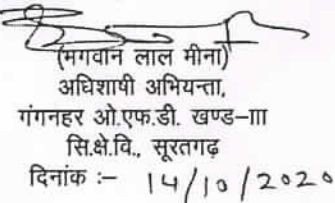 (भगवान लाल मीना)
अधिशाषी अभियन्ता,
गंगनहर ओ.एफ.डी. खण्ड-III
सि.क्षे.वि., सूरतगढ़
दिनांक :- 14/10/2020